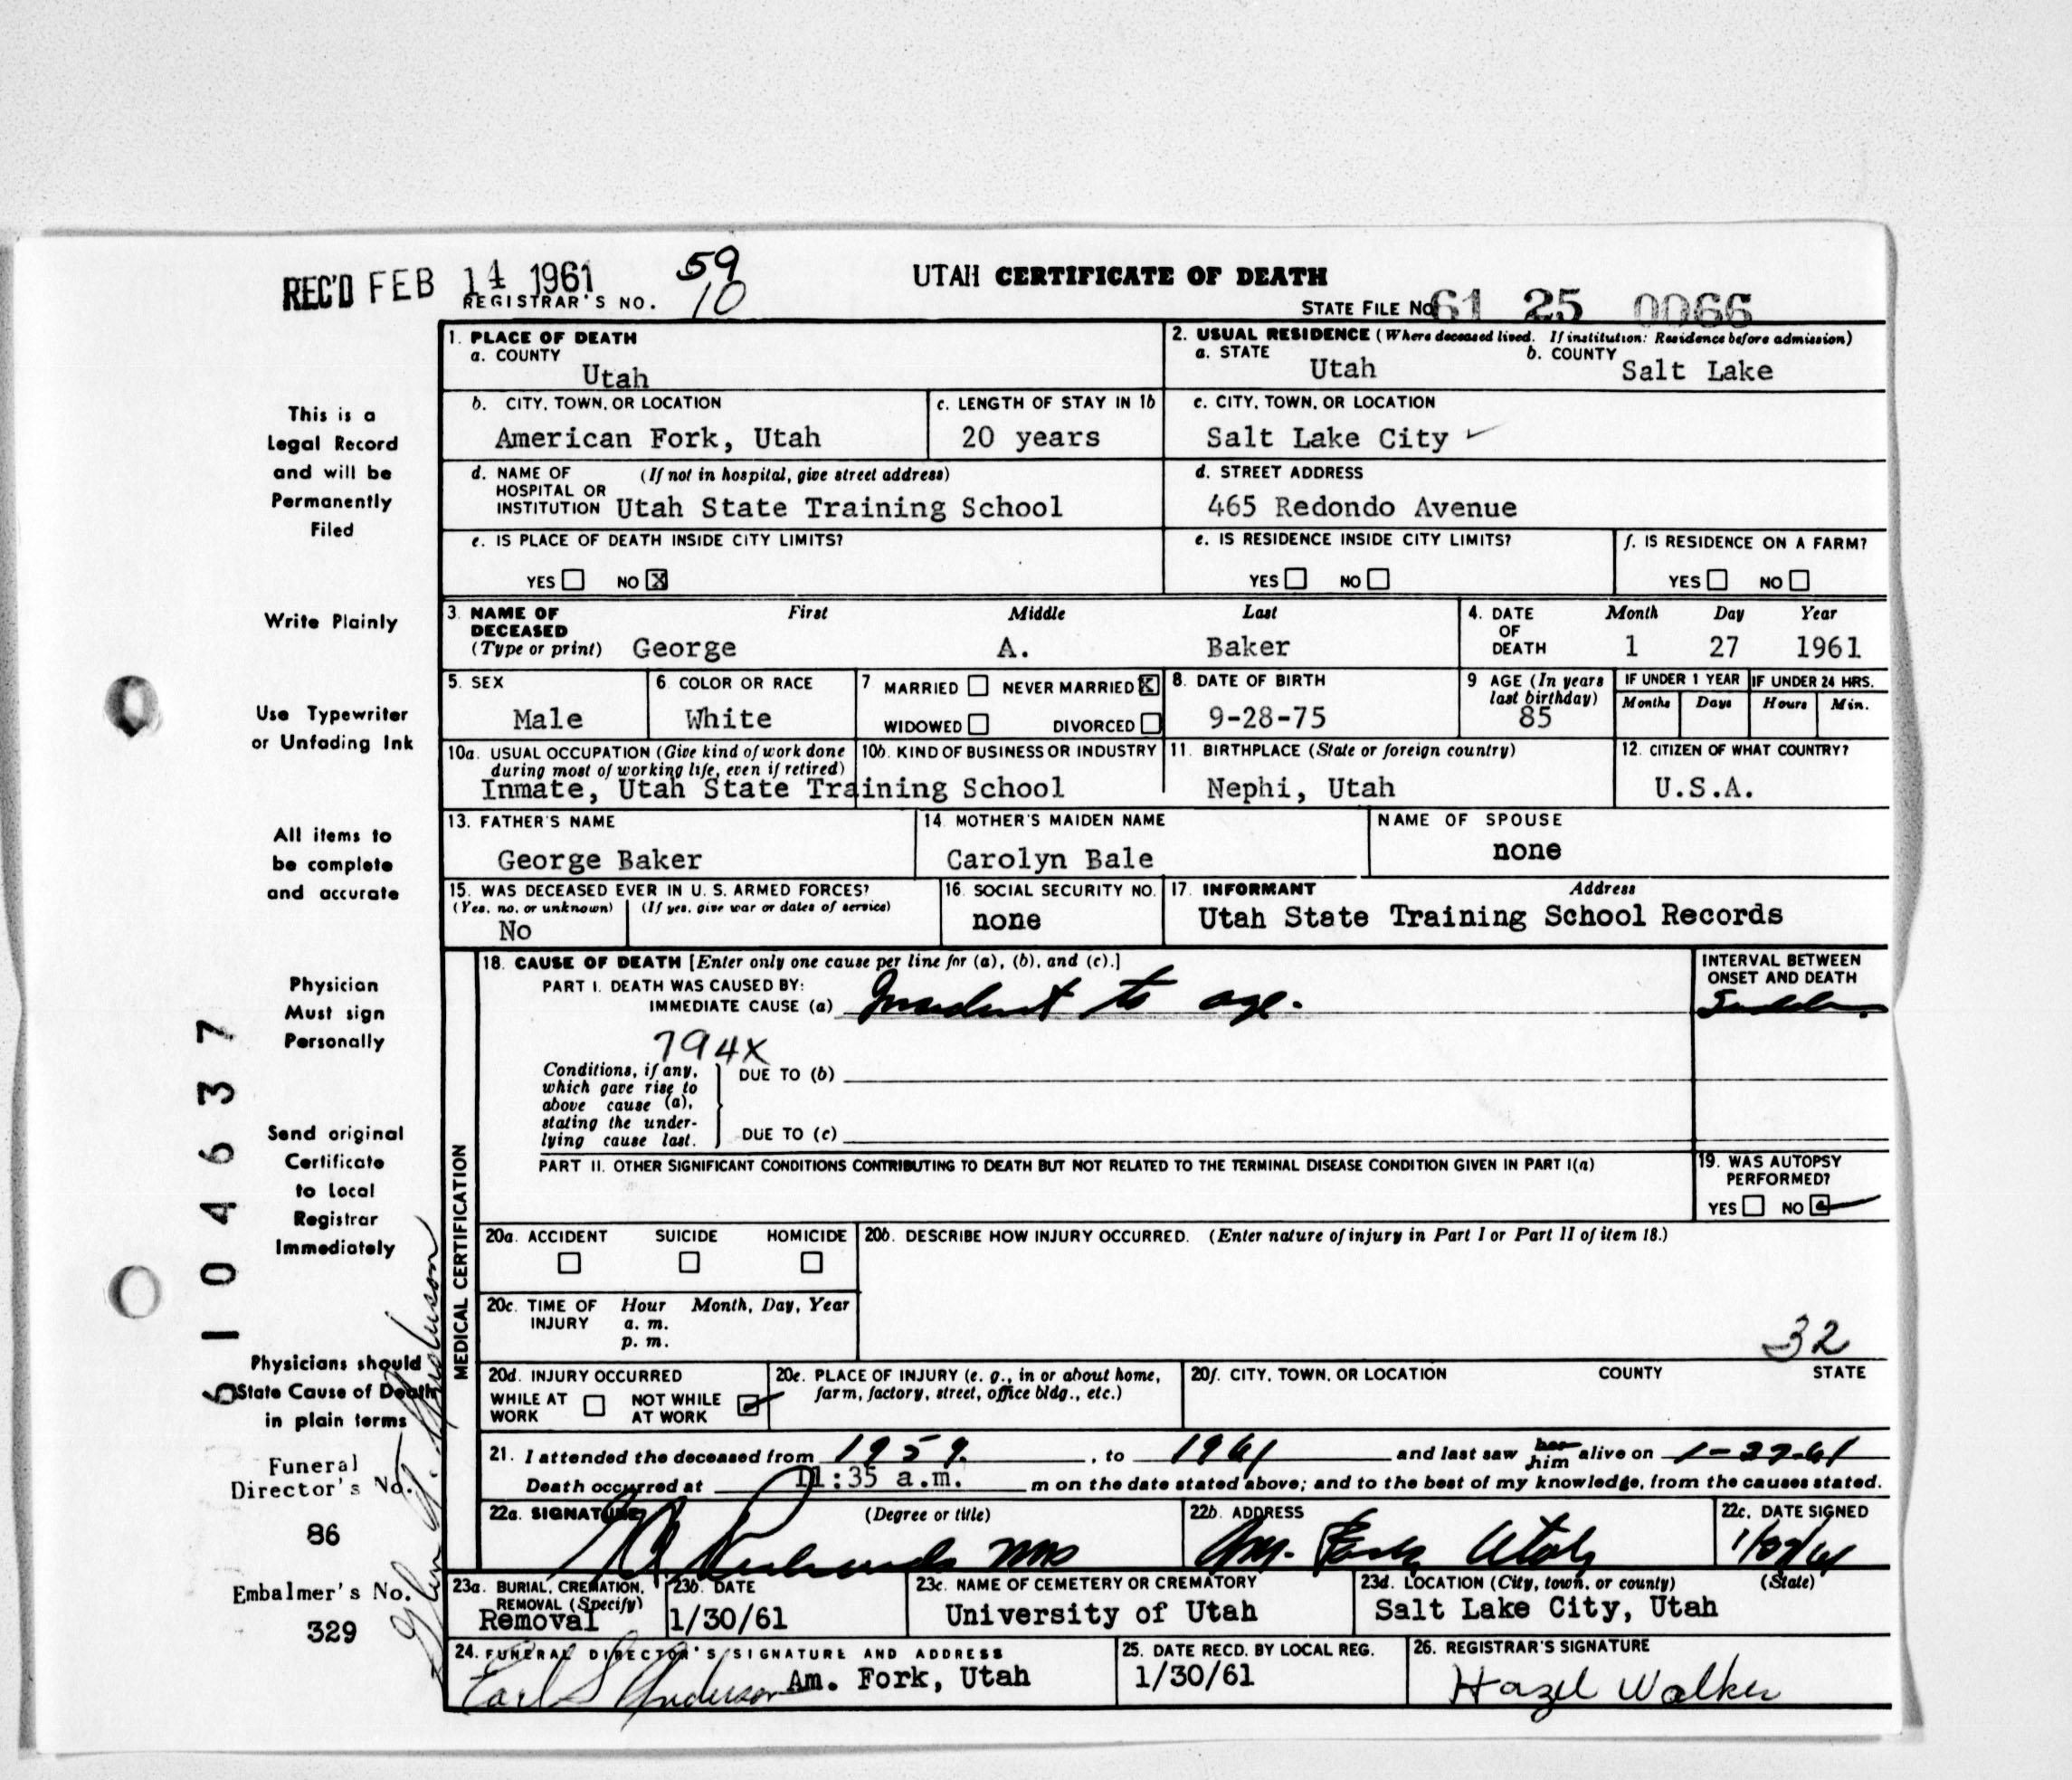 REC'D FEB 14 1961
59
REGISTRAR'S NO. 10
UTAH CERTIFICATE OF DEATH
STATE FILE NO. 61 25 0066
1. PLACE OF DEATH
a. COUNTY
Utah
2. USUAL RESIDENCE (Where deceased lived. If institution: Residence before admission)
a. STATE
Utah
b. COUNTY
Salt Lake
b. CITY, TOWN, OR LOCATION
American Fork, Utah
c. LENGTH OF STAY IN 1b
20 years
c. CITY, TOWN, OR LOCATION
Salt Lake City
d. NAME OF (If not in hospital, give street address)
HOSPITAL OR
INSTITUTION Utah State Training School
d. STREET ADDRESS
465 Redondo Avenue
e. IS PLACE OF DEATH INSIDE CITY LIMITS?
YES NO X
e. IS RESIDENCE INSIDE CITY LIMITS?
YES NO
f. IS RESIDENCE ON A FARM?
YES NO
3. NAME OF First Middle Last
DECEASED
(Type or print) George A. Baker
4. DATE Month Day Year
OF
DEATH 1 27 1961
5. SEX
Male
6. COLOR OR RACE
White
7 MARRIED NEVER MARRIED X
WIDOWED DIVORCED
8. DATE OF BIRTH
9-28-75
9 AGE (In years
last birthday)
85
IF UNDER 1 YEAR IF UNDER 24 HRS.
Months Days Hours Min.
10a. USUAL OCCUPATION (Give kind of work done
during most of working life, even if retired)
10b. KIND OF BUSINESS OR INDUSTRY
Inmate, Utah State Training School
11. BIRTHPLACE (State or foreign country)
Nephi, Utah
12. CITIZEN OF WHAT COUNTRY?
U.S.A.
13. FATHER'S NAME
George Baker
14. MOTHER'S MAIDEN NAME
Carolyn Bale
NAME OF SPOUSE
none
15. WAS DECEASED EVER IN U. S. ARMED FORCES?
(Yes, no, or unknown) (If yes, give war or dates of service)
No
16. SOCIAL SECURITY NO.
none
17. INFORMANT Address
Utah State Training School Records
MEDICAL CERTIFICATION
18. CAUSE OF DEATH [Enter only one cause per line for (a), (b), and (c).]
PART I. DEATH WAS CAUSED BY:
IMMEDIATE CAUSE (a) Incident to age.
INTERVAL BETWEEN
ONSET AND DEATH
Sudden.
794X
Conditions, if any,
which gave rise to
above cause (a),
stating the under-
lying cause last.
DUE TO (b)
DUE TO (c)
PART II. OTHER SIGNIFICANT CONDITIONS CONTRIBUTING TO DEATH BUT NOT RELATED TO THE TERMINAL DISEASE CONDITION GIVEN IN PART I(a)
19. WAS AUTOPSY
PERFORMED?
YES NO
20a. ACCIDENT SUICIDE HOMICIDE
20b. DESCRIBE HOW INJURY OCCURRED. (Enter nature of injury in Part I or Part II of item 18.)
20c. TIME OF Hour Month, Day, Year
INJURY a. m.
p. m.
32
20d. INJURY OCCURRED
WHILE AT NOT WHILE
WORK AT WORK
20e. PLACE OF INJURY (e. g., in or about home,
farm, factory, street, office bldg., etc.)
20f. CITY, TOWN, OR LOCATION COUNTY STATE
21. I attended the deceased from 1959, to 1961 and last saw her him alive on 1-27-61
Death occurred at 11:35 a.m. m on the date stated above; and to the best of my knowledge, from the causes stated.
22a. SIGNATURE (Degree or title)
22b. ADDRESS
Am. Fork, Utah
22c. DATE SIGNED
23a. BURIAL, CREMATION,
REMOVAL (Specify)
Removal
23b. DATE
1/30/61
23c. NAME OF CEMETERY OR CREMATORY
University of Utah
23d. LOCATION (City, town, or county) (State)
Salt Lake City, Utah
24. FUNERAL DIRECTOR'S SIGNATURE AND ADDRESS
Earl S Anderson Am. Fork, Utah
25. DATE RECD. BY LOCAL REG.
1/30/61
26. REGISTRAR'S SIGNATURE
Hazel Walker
This is a
Legal Record
and will be
Permanently
Filed
Write Plainly
Use Typewriter
or Unfading Ink
All items to
be complete
and accurate
Physician
Must sign
Personally
Send original
Certificate
to Local
Registrar
Immediately
Physicians should
State Cause of Death
in plain terms
Funeral
Director's No.
86
Embalmer's No.
329
6104637